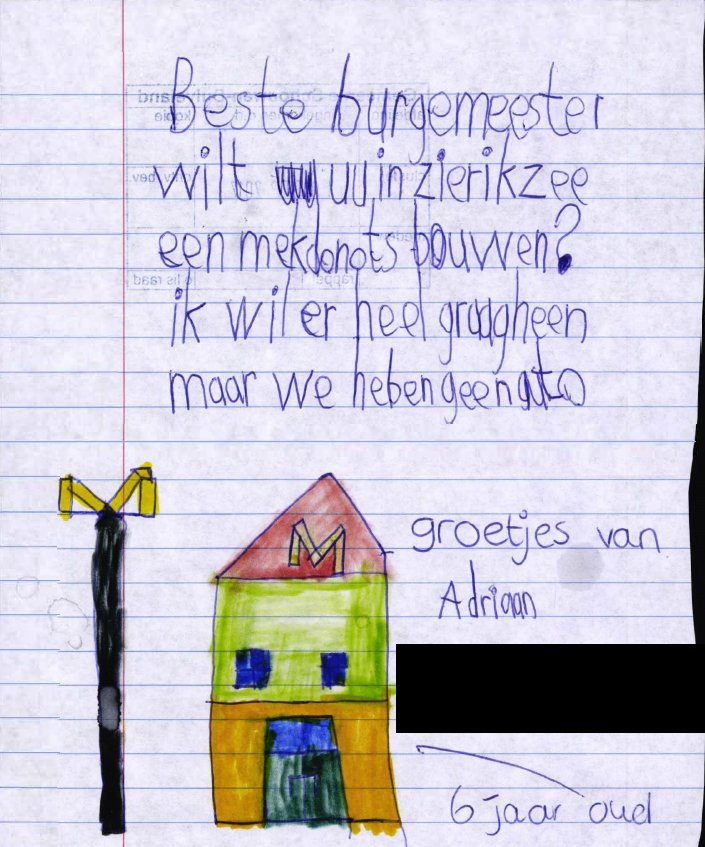 Beste burgemeester
wilt uu in zierikzee
een mekdonots bouwen?
ik wil er heel graag heen
maar we heben geen auto
M
M
groetjes van
Adriaan
6 jaar oud